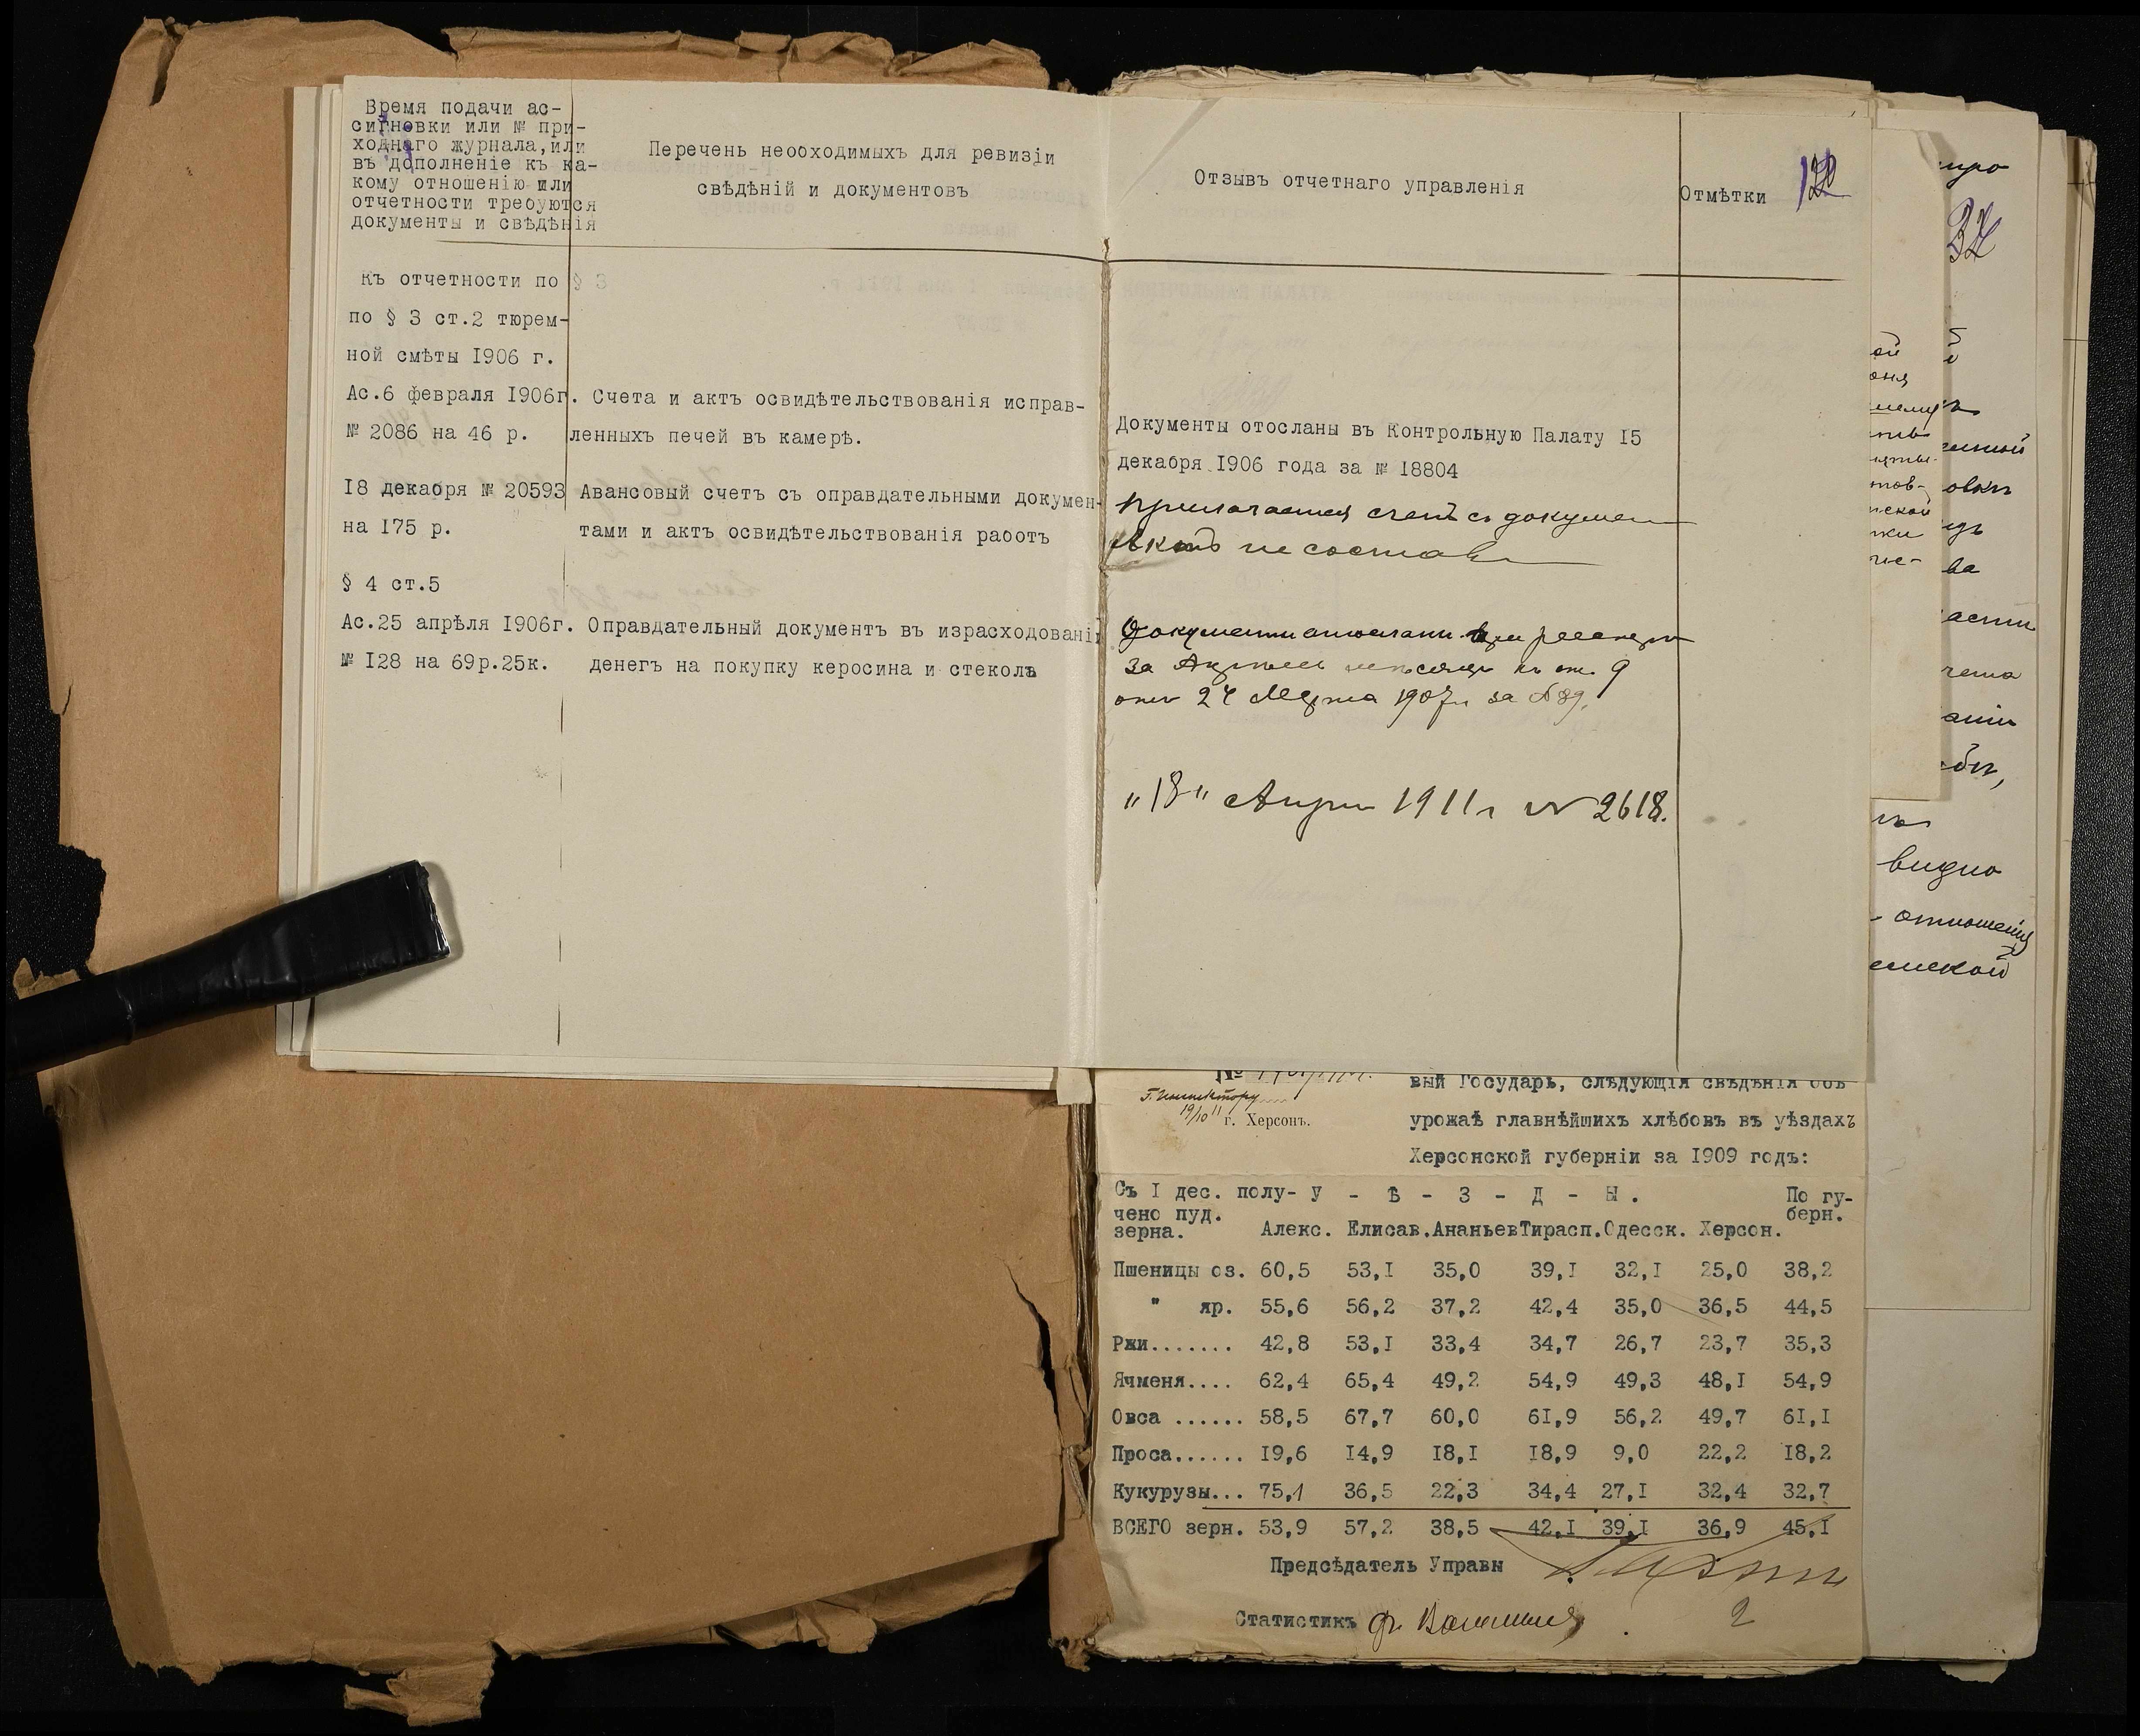 Время подачи ас-
сигновки или № при-
ходнаго журнала, или
въ дополненіе къ ка-
кому отношенію или
отчетности требуются
документы и свѣдѣнія
Перечень необходимыхъ для ревизіи
свѣдѣній и документовъ
Отзывъ отчетнаго управленія
Отмѣтки
Къ отчетности по § 3
по § 3 ст.2 тюрем-
ной смѣты 1906 г.
Ас.6 февраля 1906г. Счета и актъ освидѣтельствованія исправ-
№ 2086 на 46 р. ленныхъ печей въ камерѣ.
Документы отосланы въ Контрольную Палату 15
декабря 1906 года за № 18804
18 декабря № 20593 Авансовый счетъ съ оправдательными докумен-
на 175 р. тами и актъ освидѣтельствованія работъ
Прилагается счетъ с докумен
Актъ не состав
§ 4 ст.5
Ас.25 апрѣля 1906г. Оправдательный документъ въ израсходованіи
№ 128 на 69р.25к. денегъ на покупку керосина и стеколъ
Документи отосланы при
за Апрѣль мѣсяцъ къ ст. 9
отъ 24 Марта 1907г. за № 89.
"18" Апр 1911г № 2618.
32
видно
отношенія
№
вый Государь, слѣдующія свѣдѣнія объ
Г. Инспектору
19/10 11
г. Херсонъ.
урожаѣ главнѣйшихъ хлѣбовъ въ уѣздахъ
Херсонской губерніи за 1909 годъ:
Съ 1 дес. полу- У - Ѣ - З - Д - Ы . По гу-
чено пуд. берн.
зерна. Алекс. Елисав. Ананьев Тирасп. Одесск. Херсон.
Пшеницы оз. 60,5 53,1 35,0 39,1 32,1 25,0 38,2
" яр. 55,6 56,2 37,2 42,4 35,0 36,5 44,5
Ржи....... 42,8 53,1 33,4 34,7 26,7 23,7 35,3
Ячменя.... 62,4 65,4 49,2 54,9 49,3 48,1 54,9
Овса ...... 58,5 67,7 60,0 61,9 56,2 49,7 61,1
Проса...... 19,6 14,9 18,1 18,9 9,0 22,2 18,2
Кукурузы... 75,1 36,5 22,3 34,4 27,1 32,4 32,7
ВСЕГО зерн. 53,9 57,2 38,5 42,1 39,1 36,9 45,1
Предсѣдатель Управы
Статистикъ
2